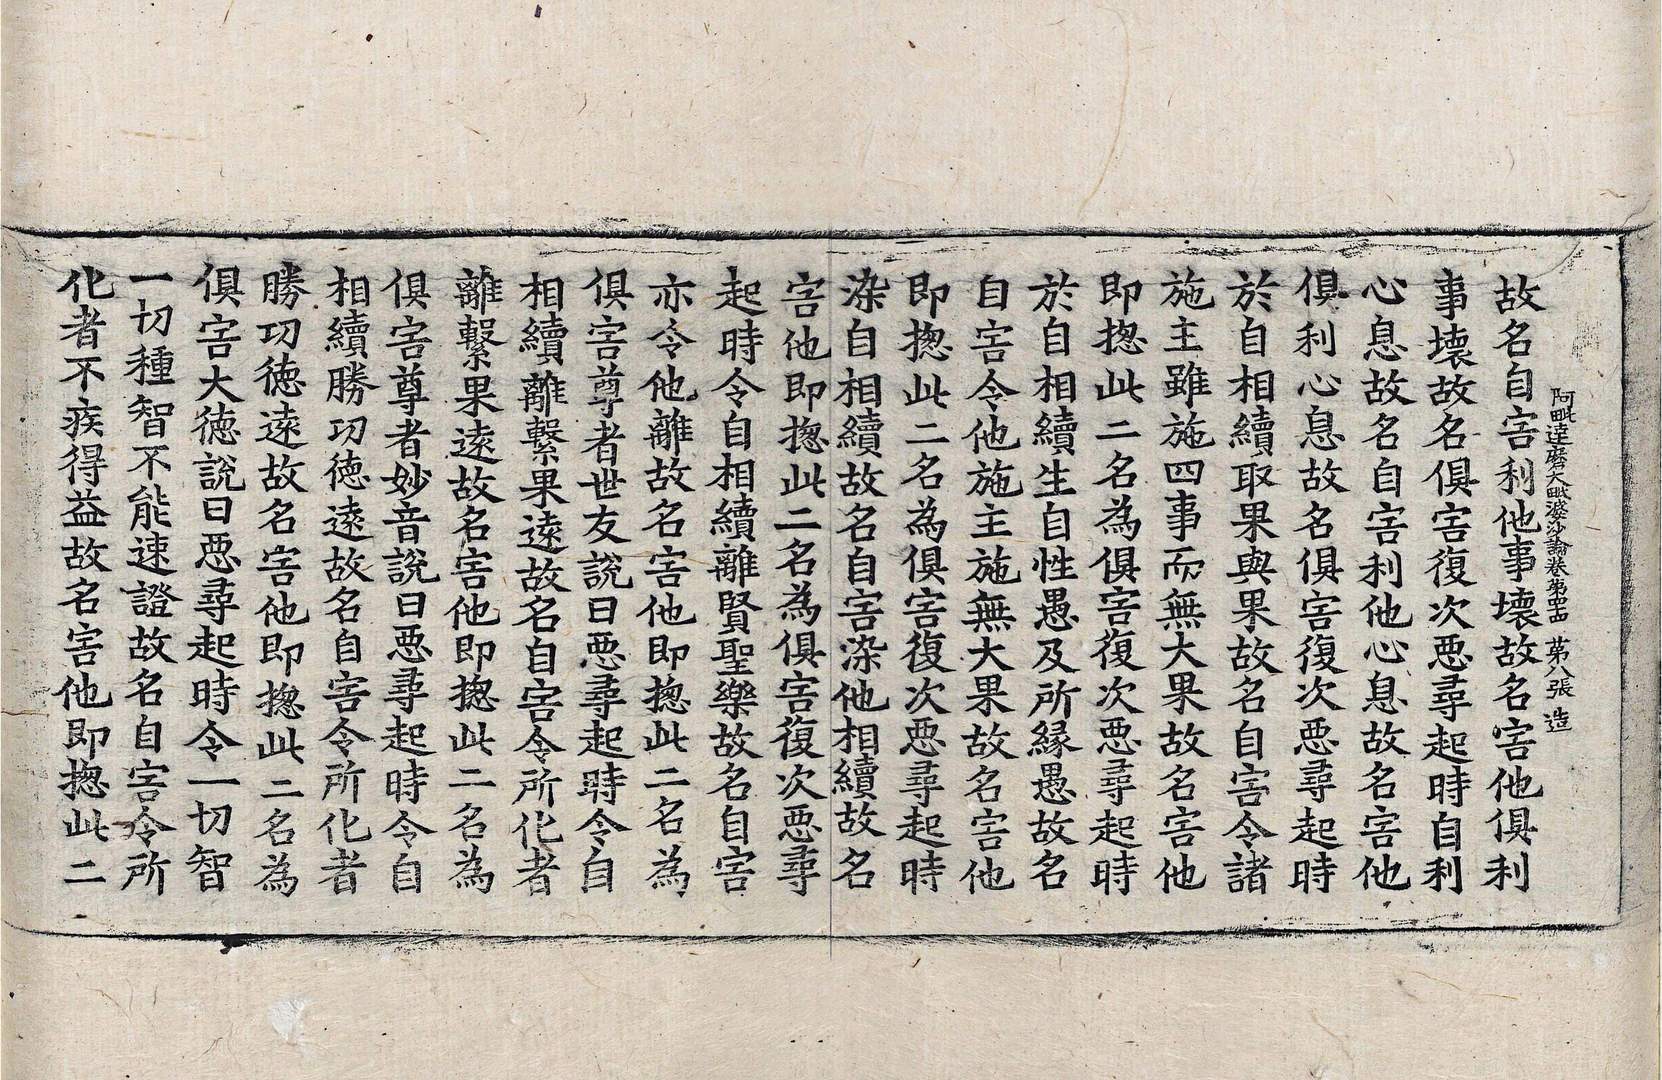 阿毗達磨大毗婆沙論卷第四十四 第八張 造
故名自害利他事壞故名害他俱利
事壞故名俱害復次惡尋起時自利
心息故名自害利他心息故名害他
俱利心息故名俱害復次惡尋起時
於自相續取果與果故名自害令諸
施主雖施四事而無大果故名害他
即揔此二名為俱害復次惡尋起時
於自相續生自性愚及所緣愚故名
自害令他施主施無大果故名害他
即揔此二名為俱害復次惡尋起時
染自相續故名自害染他相續故名
害他即揔此二名為俱害復次惡尋
起時令自相續離賢聖樂故名自害
亦令他離故名害他即揔此二名為
俱害尊者世友說曰惡尋起時令自
相續離繫果遠故名自害令所化者
離繫果遠故名害他即揔此二名為
俱害尊者妙音說曰惡尋起時令自
相續勝功德遠故名自害令所化者
勝功德遠故名害他即揔此二名為
俱害大德說曰惡尋起時令一切智
一切種智不能速證故名自害令所
化者不疾得益故名害他即揔此二